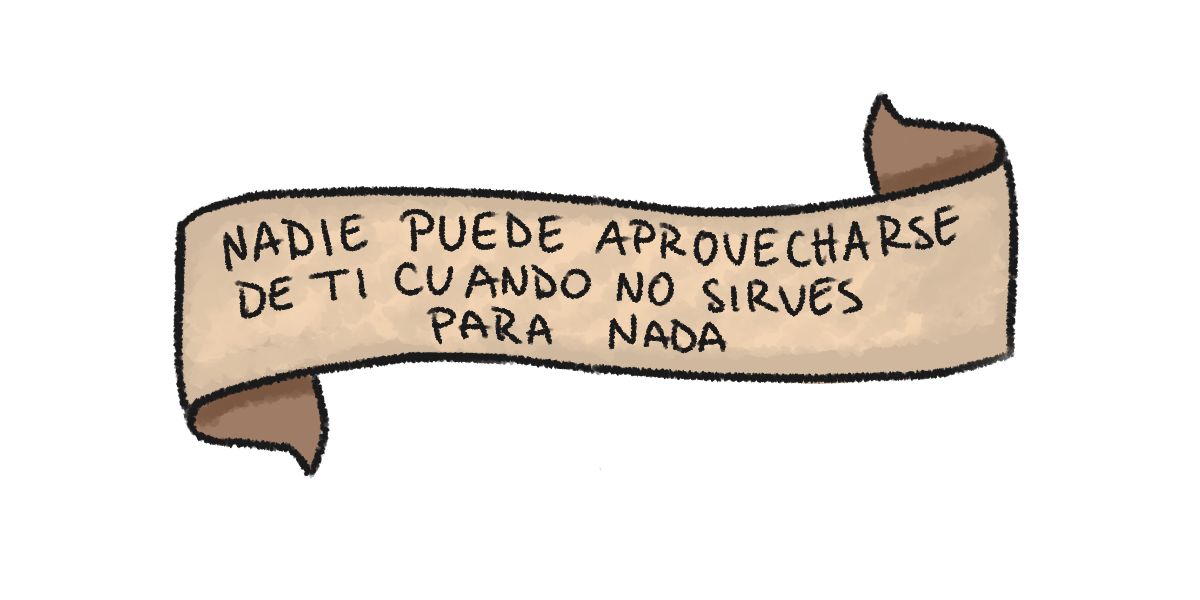 NADIE PUEDE APROVECHARSE
DE TI CUANDO NO SIRVES
PARA NADA